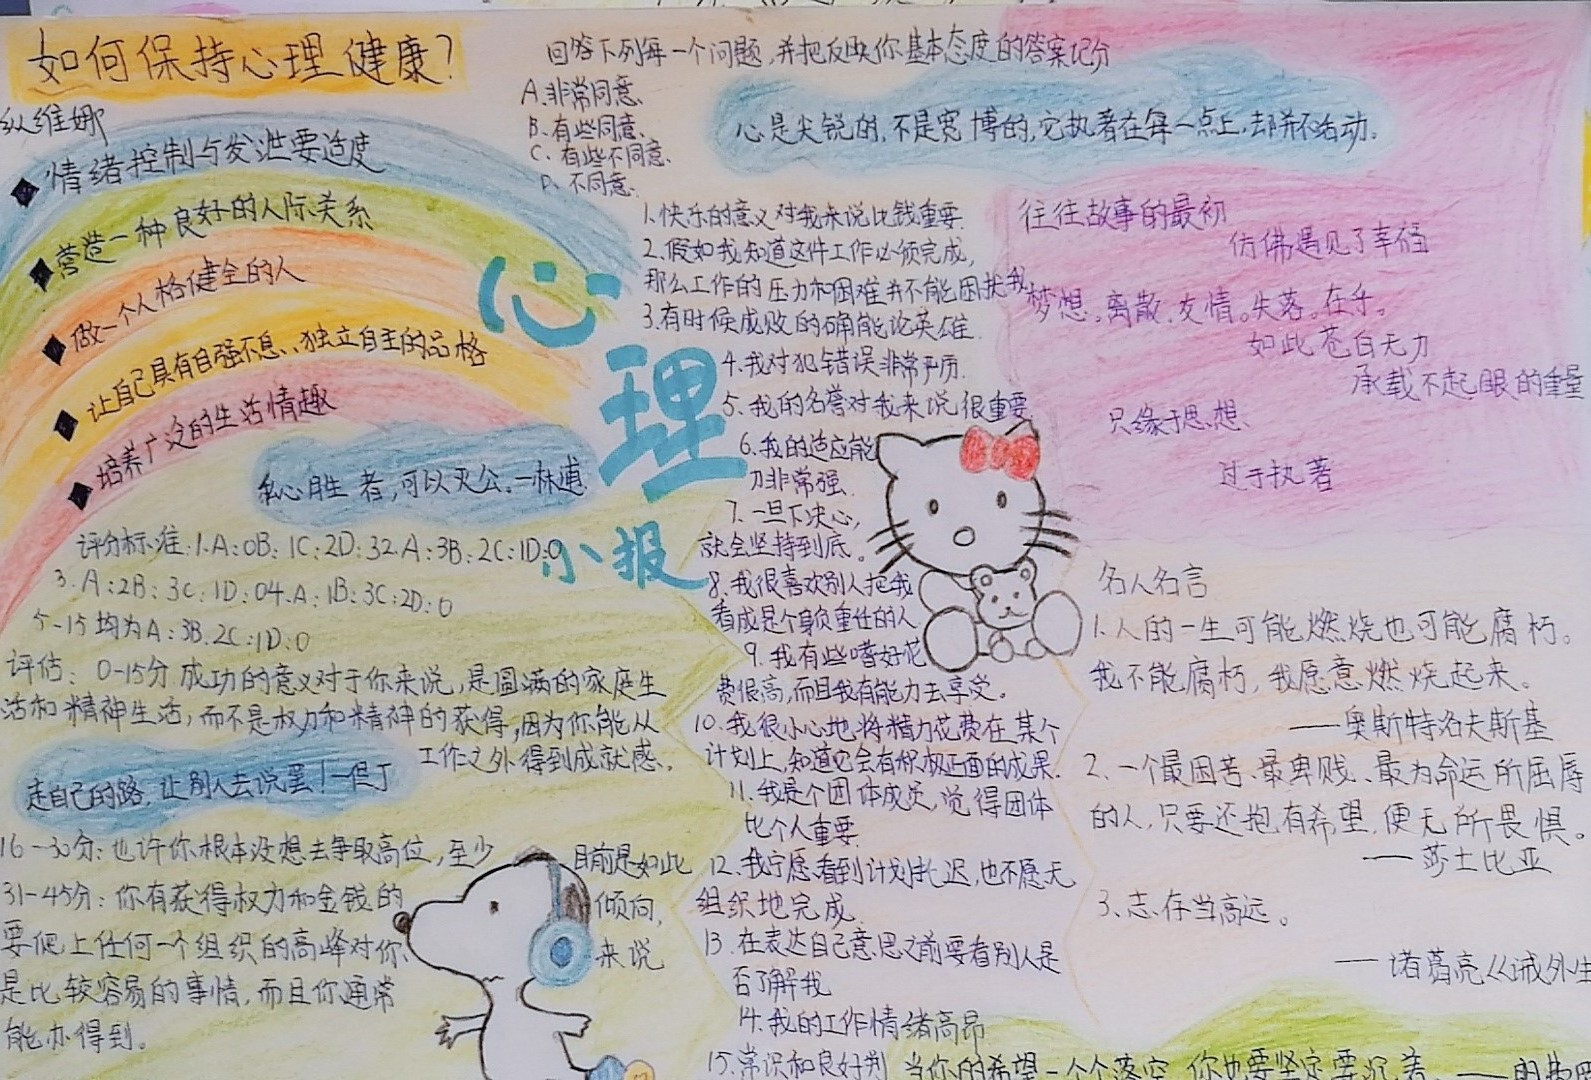 如何保持心理健康?
纵维娜
◆情绪控制与发泄要适度
◆营造一种良好的人际关系
◆做一个人格健全的人
◆让自己具有自强不息、独立自主的品格
◆培养广泛的生活情趣
私心胜者,可以灭公。—林逋
心理
小报
评分标准:1.A:0B:1C:2D:32.A:3B:2C:1D:0
3.A:2B:3C:1D:04.A:1B:3C:2D:0
5-15均为A:3B.2C:1D:0
评估: 0-15分 成功的意义对于你来说,是圆满的家庭生
活和精神生活,而不是权力和精神的获得,因为你能从
工作之外得到成就感。
走自己的路,让别人去说罢!—但丁
16-30分:也许你根本没想去争取高位,至少目前是如此
31-45分:你有获得权力和金钱的倾向,
要爬上任何一个组织的高峰对你来说
是比较容易的事情,而且你通常
能办得到。
回答下列每一个问题,并把反映你基本态度的答案记分
A.非常同意、
B.有些同意、
C.有些不同意、
D.不同意.
1.快乐的意义对我来说比钱重要.
2.假如我知道这件工作必须完成,
那么工作的压力和困难并不能困扰我
3.有时候成败的确能论英雄.
4.我对犯错误非常严厉.
5.我的名誉对我来说很重要
6.我的适应能
力非常强.
7.一旦下决心,
就会坚持到底。
8.我很喜欢别人把我
看成是个身负重任的人
9.我有些嗜好花
费很高,而且我有能力去享受。
10.我很小心地将精力花费在某个
计划上,知道它会有积极正面的成果.
11.我是个团体成员,觉得团体
比个人重要
12.我宁愿看到计划托迟,也不愿无
组织地完成.
13.在表达自己意思之前要看别人是
否了解我
14.我的工作情绪高昂
15.常识和良好判
心是尖锐的,不是宽博的,它执著在每一点上,却并不活动。
往往故事的最初
仿佛遇见了幸福
梦想。离散.友情。失落。在乎。
如此苍白无力
承载不起眼的重量
只缘于思想、
过于执著
名人名言
1.人的一生可能燃烧也可能腐朽。
我不能腐朽,我愿意燃烧起来。
——奥斯特洛夫斯基
2.一个最困苦、最卑贱、最为命运所屈辱
的人,只要还抱有希望,便无所畏惧。
——莎士比亚
3.志存当高远。
——诸葛亮《诫外生
当你的希望一个个落空,你也要坚定要沉着.——朗费罗